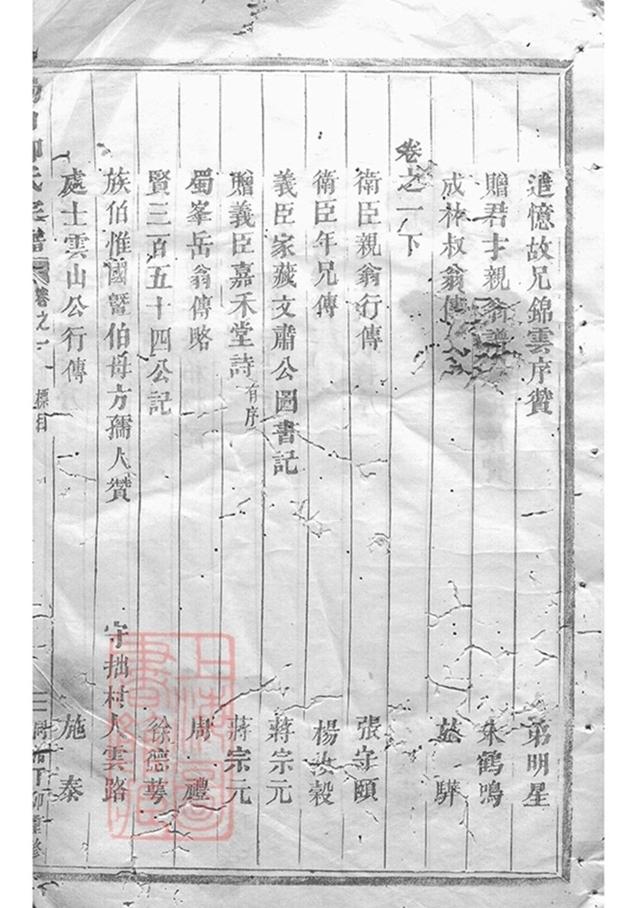 追憶故兄錦雲序贊 弟明星
贈君士親翁 朱鶴鳴
成林叔翁傳 驊
卷之一下
衛臣親翁行傳 張守頤
衛臣年兄傳 楊汝穀
義臣家藏文肅公圖書記 蔣宗元
贈義臣嘉禾堂詩 有序 蔣宗元
蜀峯岳翁傳略 周禮
賢三百五十四公記 徐德萼
族伯惟國暨伯母方孺人贊 守拙村人雲路
處士雲山公行傳 施泰
氏 譜 卷之一 標目 同治丁卯重修
上海圖書館